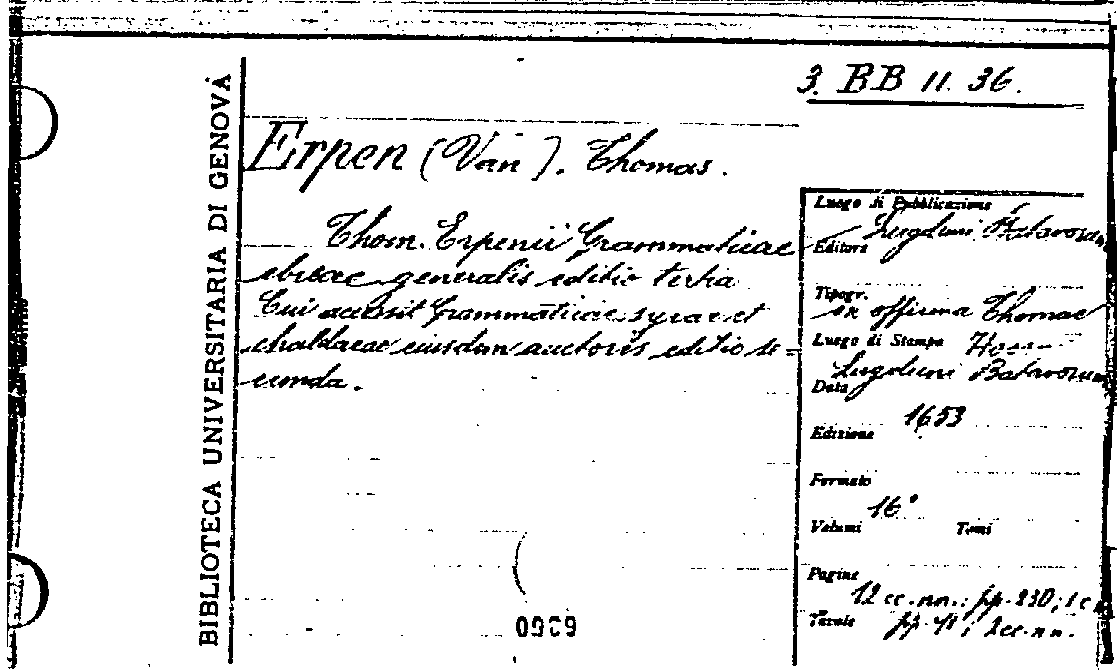 BIBLIOTECA UNIVERSITARIA DI GENOVA
3. BB 11. 36.
Erpen (Van). Thomas.
Thom. Erpenii Grammaticae
ebreae generalis editio tertia
Cui accessit Grammaticae syrae et
chaldaeae eiusdem auctoris editio se=
cunda.
Luogo di Pubblicazione
Lugduni Batavorum
Editore
Tipogr.
ex officina Thomae
Luogo di Stampa
Lugduni Batavorum
Data
1653
Edizione
Formato
16°
Volumi Tomi
Pagine
12 cc. nn.; pp. 230; 1 c
Tavole pp. ; 2 cc. nn.